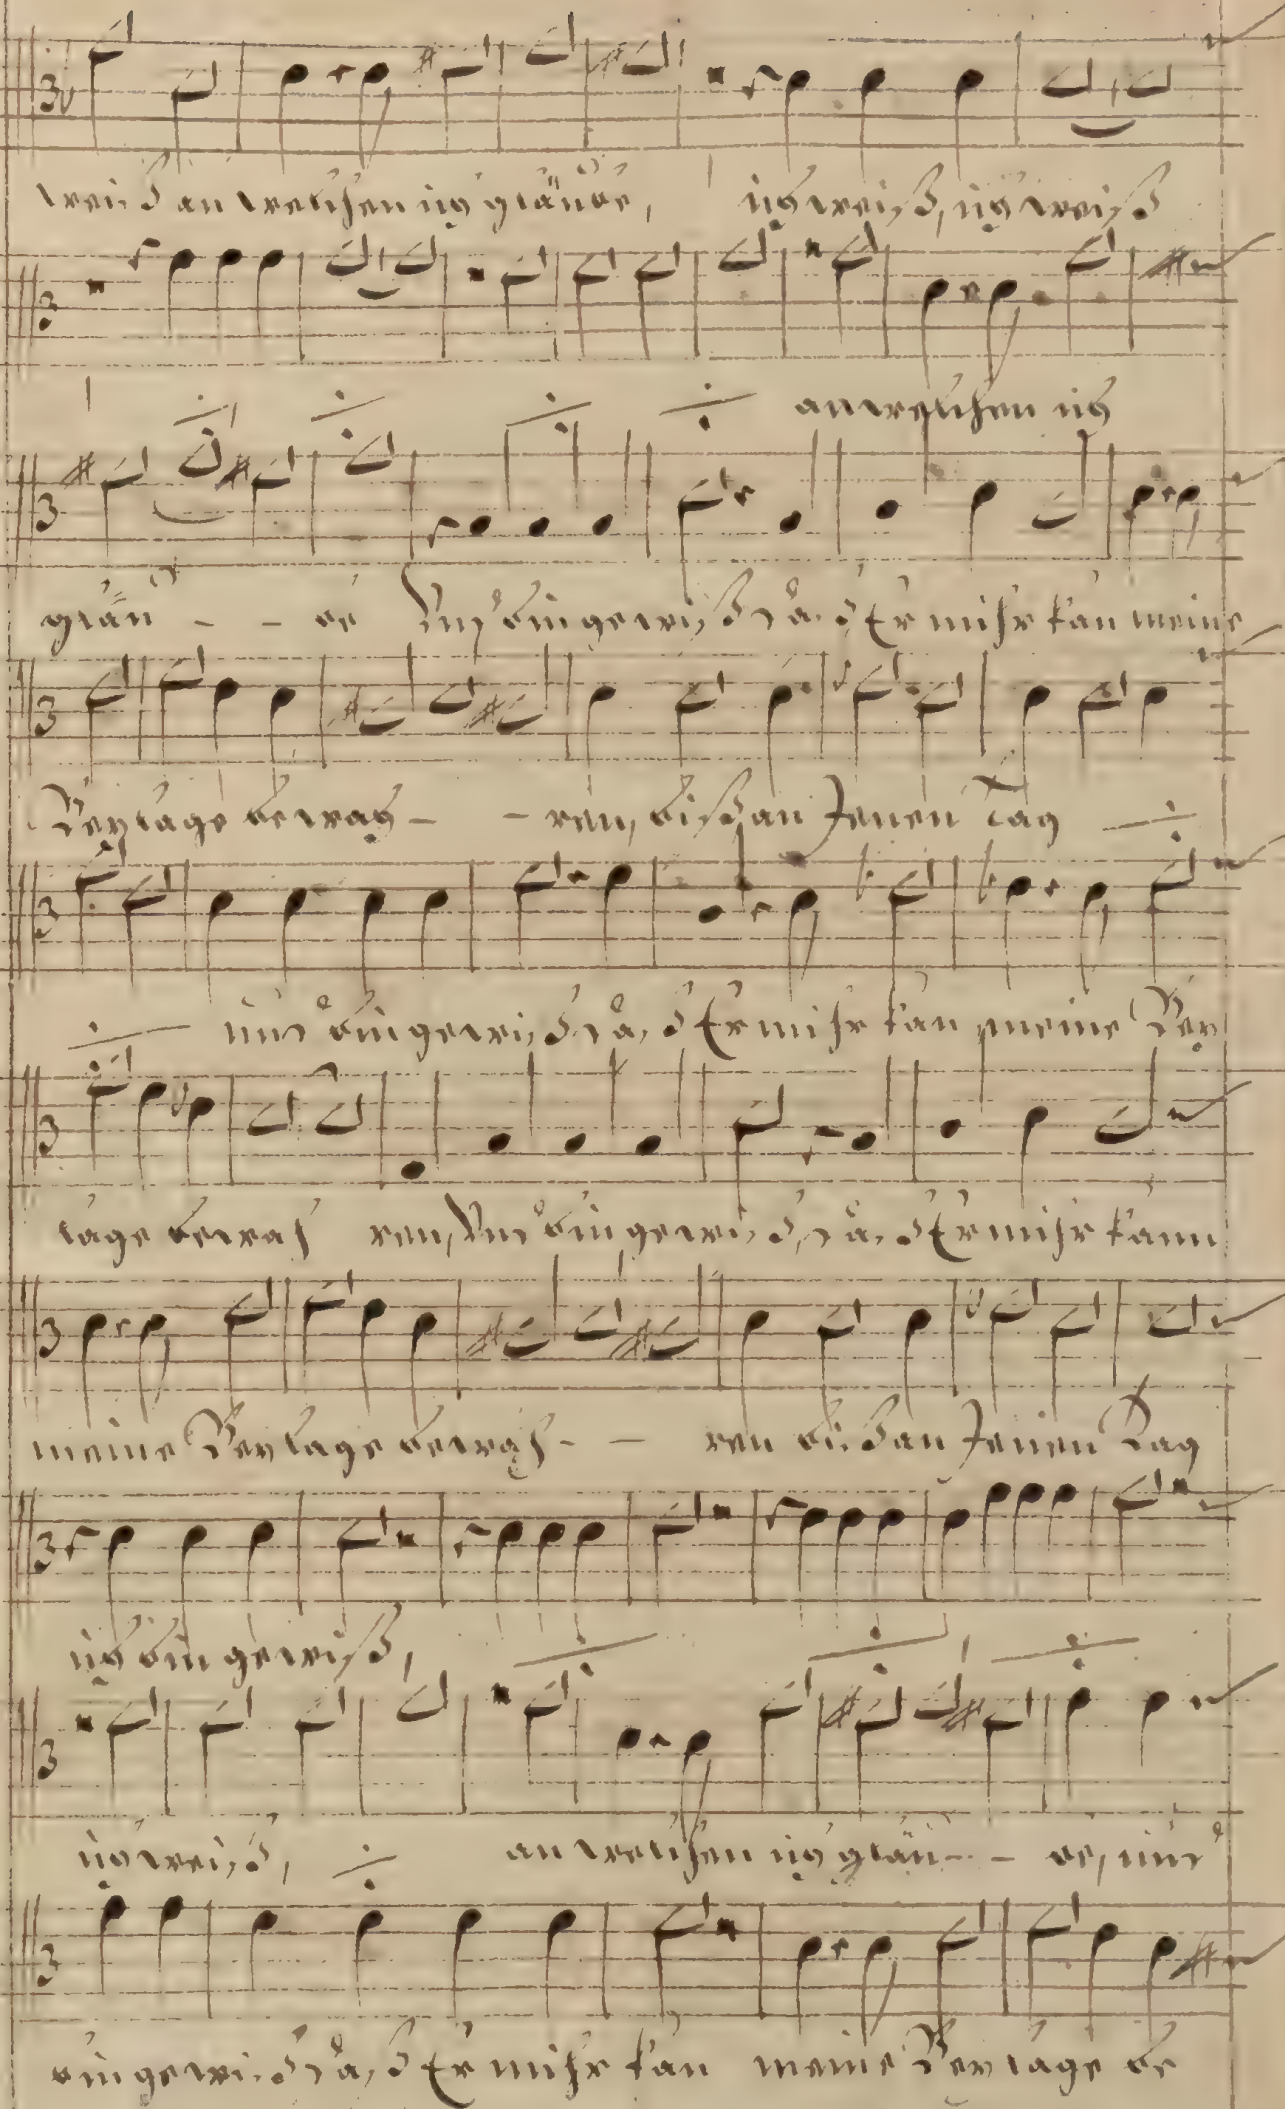 weiß an welchen ich gläube, ich weiß, ich weiß
an welchen ich
gläu - - be Und bin gewiß daß Er mihr kan meine
Beylage bewah - - ren, biß an Jenen Tag
und bin gewiß daß Er mihr kan meine Bey
lage bewah ren, Und bin gewiß, daß Er mihr kann
meine Beylage bewah - - ren biß an Jenen Tag
ich bin gewiß,
ich weiß, an welchen ich gläu - - be, und
bin gewiß daß Er mihr kan meine Beylage be